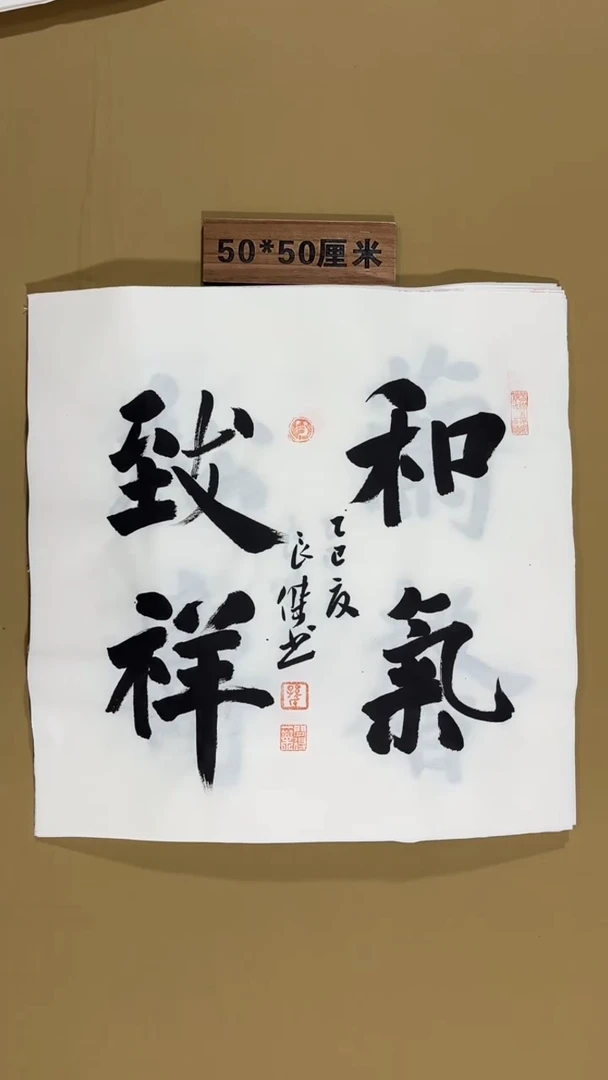 50*50厘米
和氣
致祥
乙巳夏
良佳书